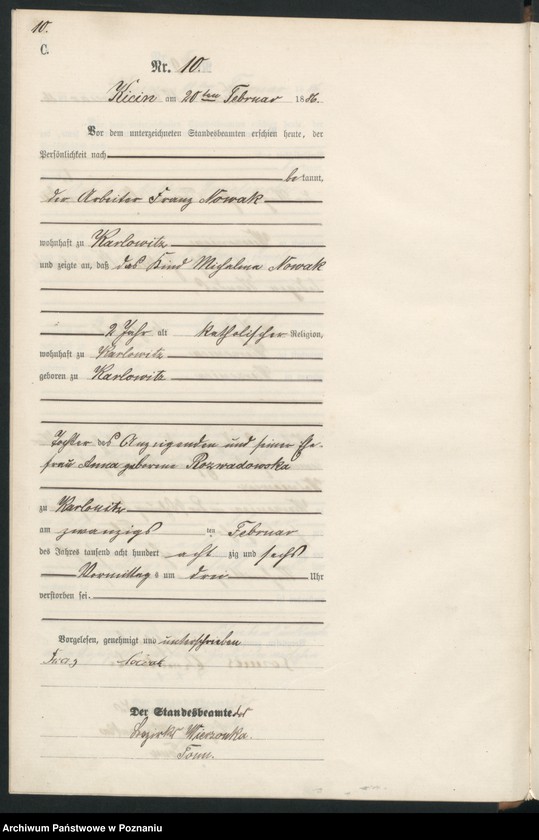 10.
C.
Nr. 10.
Kicin am 20ten Februar 1886.
Vor dem unterzeichneten Standesbeamten erschien heute, der
Persönlichkeit nach
bekannt,
der Arbeiter Franz Nowak
wohnhaft zu Karlowitz
und zeigte an, daß das Kind Michalina Nowak
2 Jahr alt katholischer Religion,
wohnhaft zu Karlowitz
geboren zu Karlowitz
Tochter des Anzeigenden und seiner Ehe-
frau Anna geborene Rozwadowska
zu Karlowitz
am zwanzigs ten Februar
des Jahres tausend acht hundert acht zig und sechs
Vormittag s um drei Uhr
verstorben sei.
Vorgelesen, genehmigt und unterschrieben
Franz Nowak
Der Standesbeamte des
Bezirks Wierzonka.